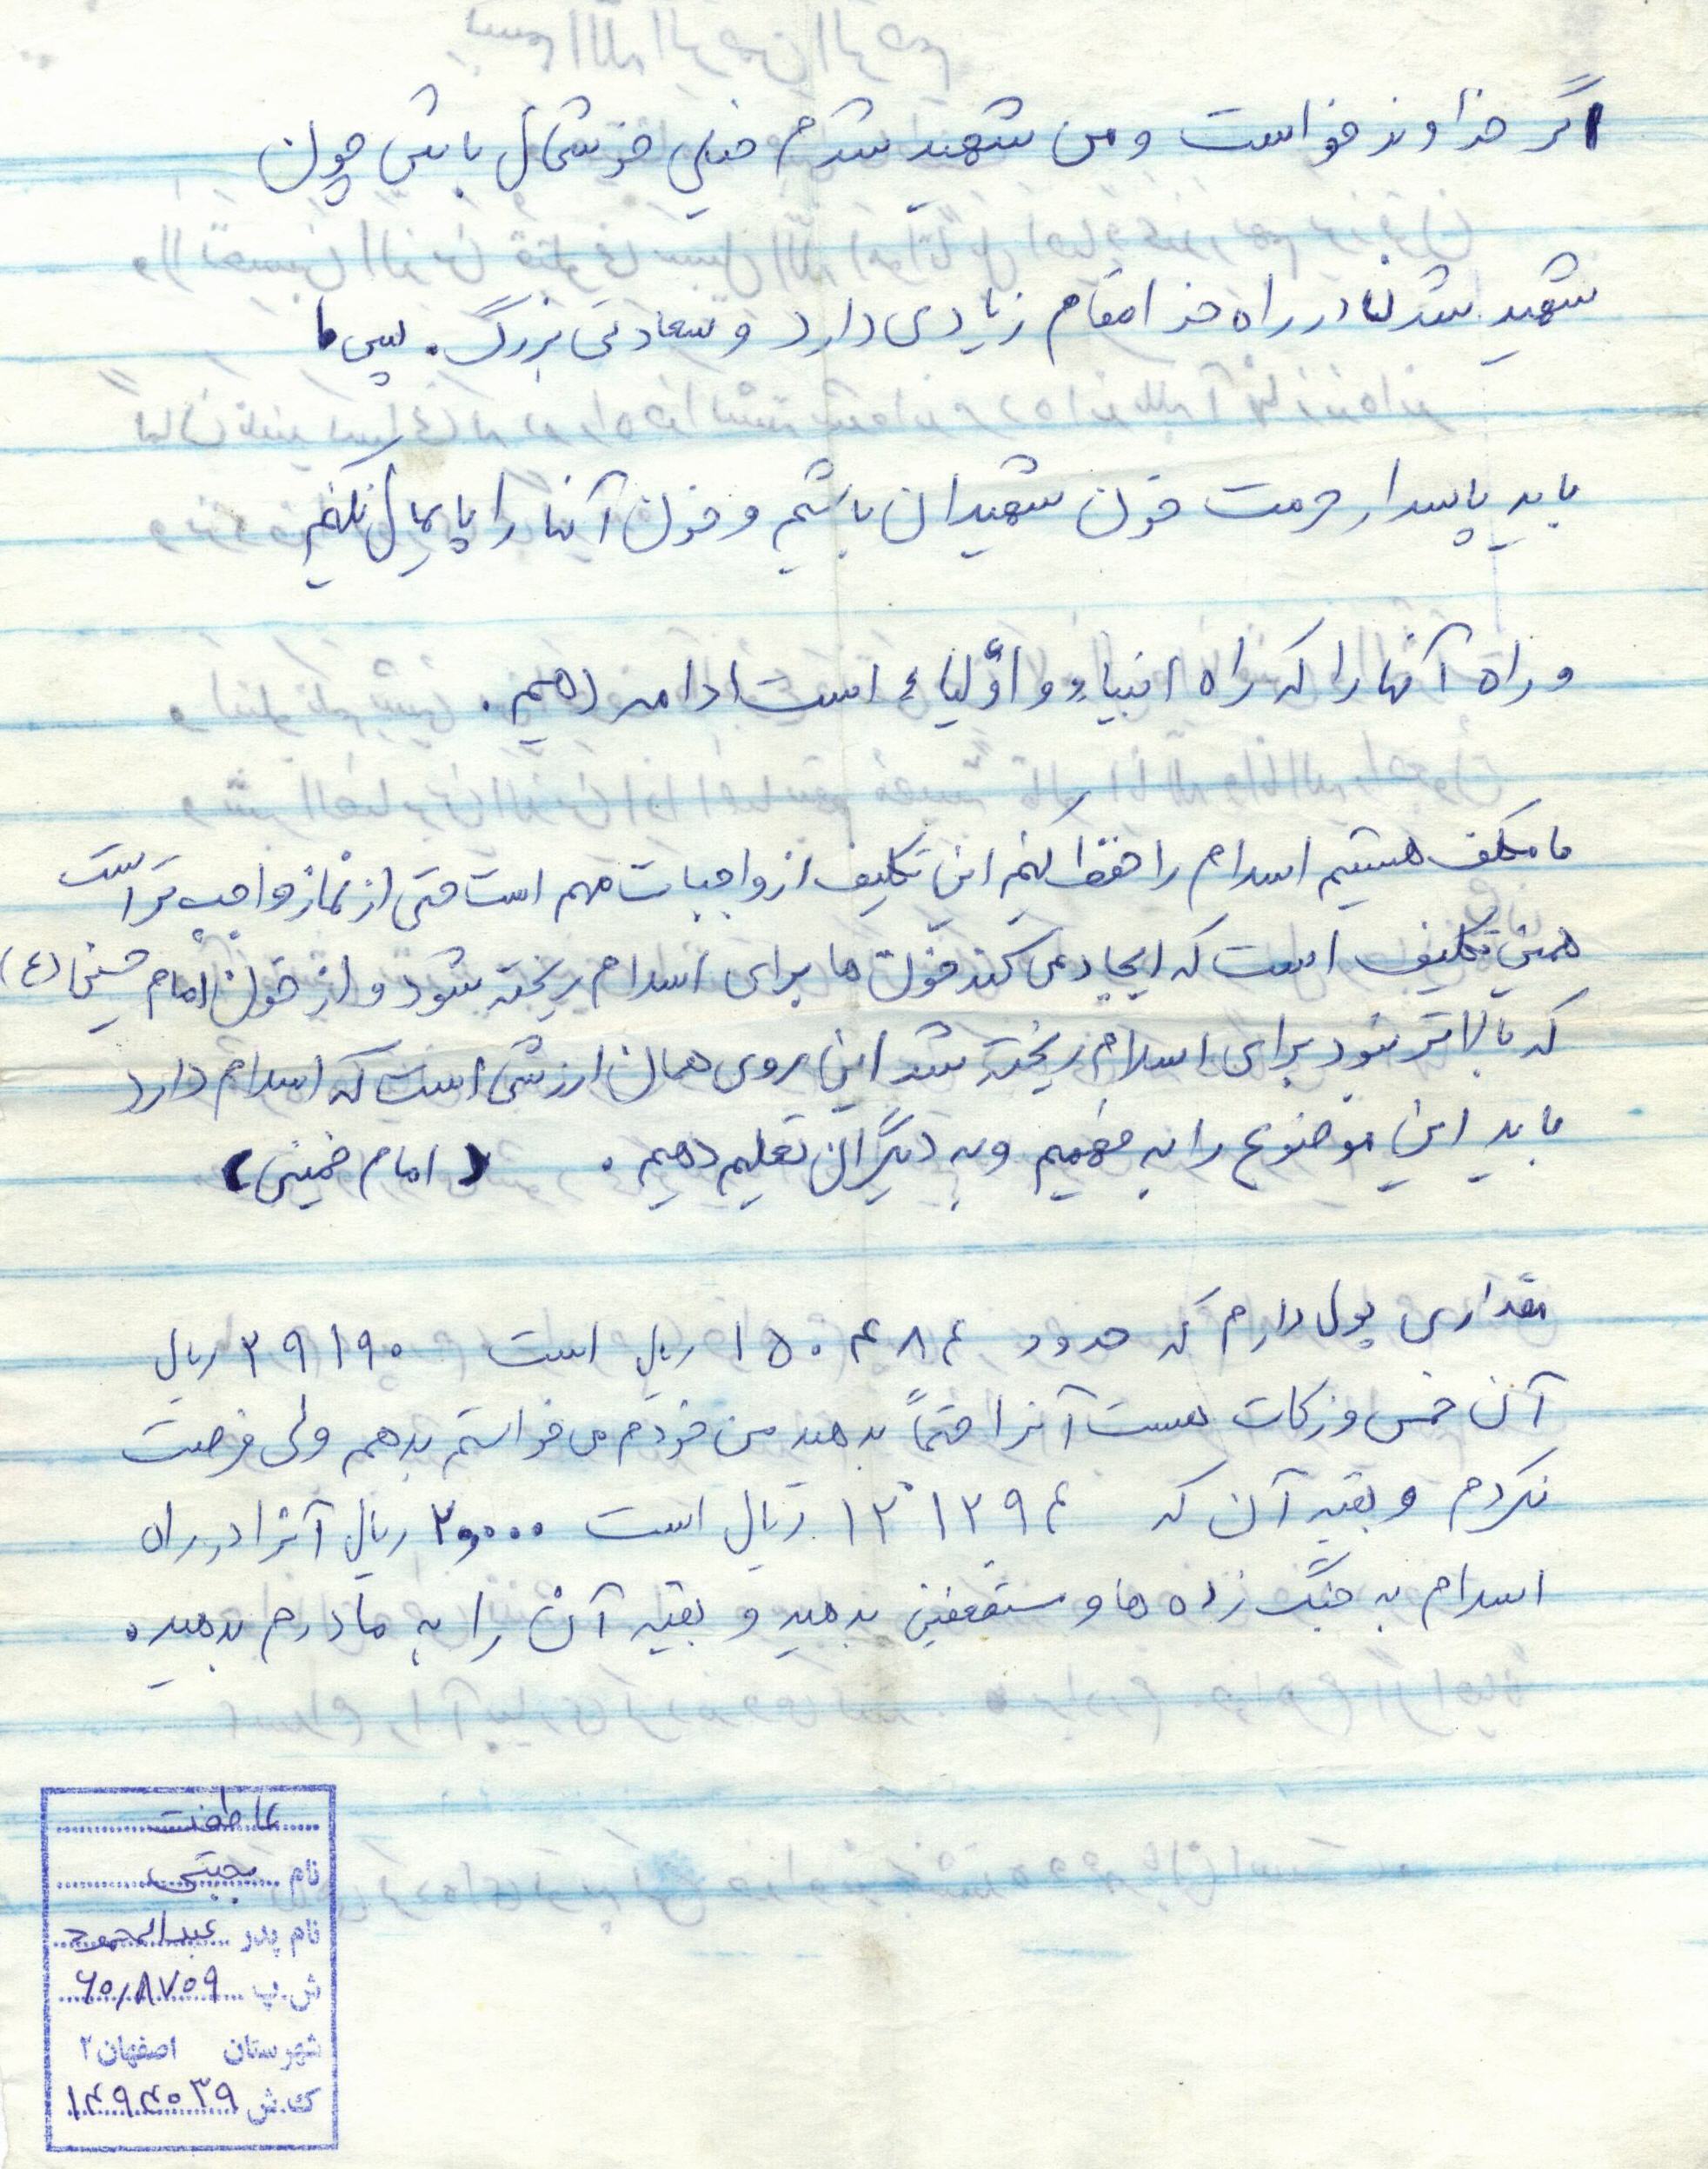 اگر خداوند خواست و من شهید شدم خیلی خوشحال باش چون
شهید شدن در راه خدا مقام زیادی دارد و سعادتی بزرگ. پس ما
باید پاسدار حرمت خون شهیدان باشیم و خون آنها را پایمال نکنیم
و راه آنها را که راه انبیاء و اولیاء است ادامه دهیم.
ما مکلف هستیم اسلام را حفظ کنیم این تکلیف از واجبات مهم است حتی از نماز واجب تر است
همین تکلیف است که ایجاد می کند خون ها برای اسلام ریخته شود و از خون امام حسین (ع)
که بالاتر نبود برای اسلام ریخته شد این روی همان ارزشی است که اسلام دارد
باید این موضوع را به فهمیم و به دیگران تعلیم دهیم. (امام خمینی)
مقداری پول دارم که حدود ۱۵۰۴۸۴ ریال است ۲۹۱۹۰ ریال
آن خمس و زکات هست آنرا حتماً بدهید من خودم می خواستم بدهم ولی فرصت
نکردم و بقیه آن که ۱۲۱۲۹۴ ریال است ۲۰,۰۰۰ ریال آنرا در راه
اسلام به جنگ زده ها و مستضعفین بدهید و بقیه آن را به مادرم بدهید.
عاطفت
نام مجتبی
نام پدر عبدالمحمود
ش.پ ۶۰/۸۷۵۹
شهرستان اصفهان ۲
ک.ش ۱۴۹۴۰۳۹